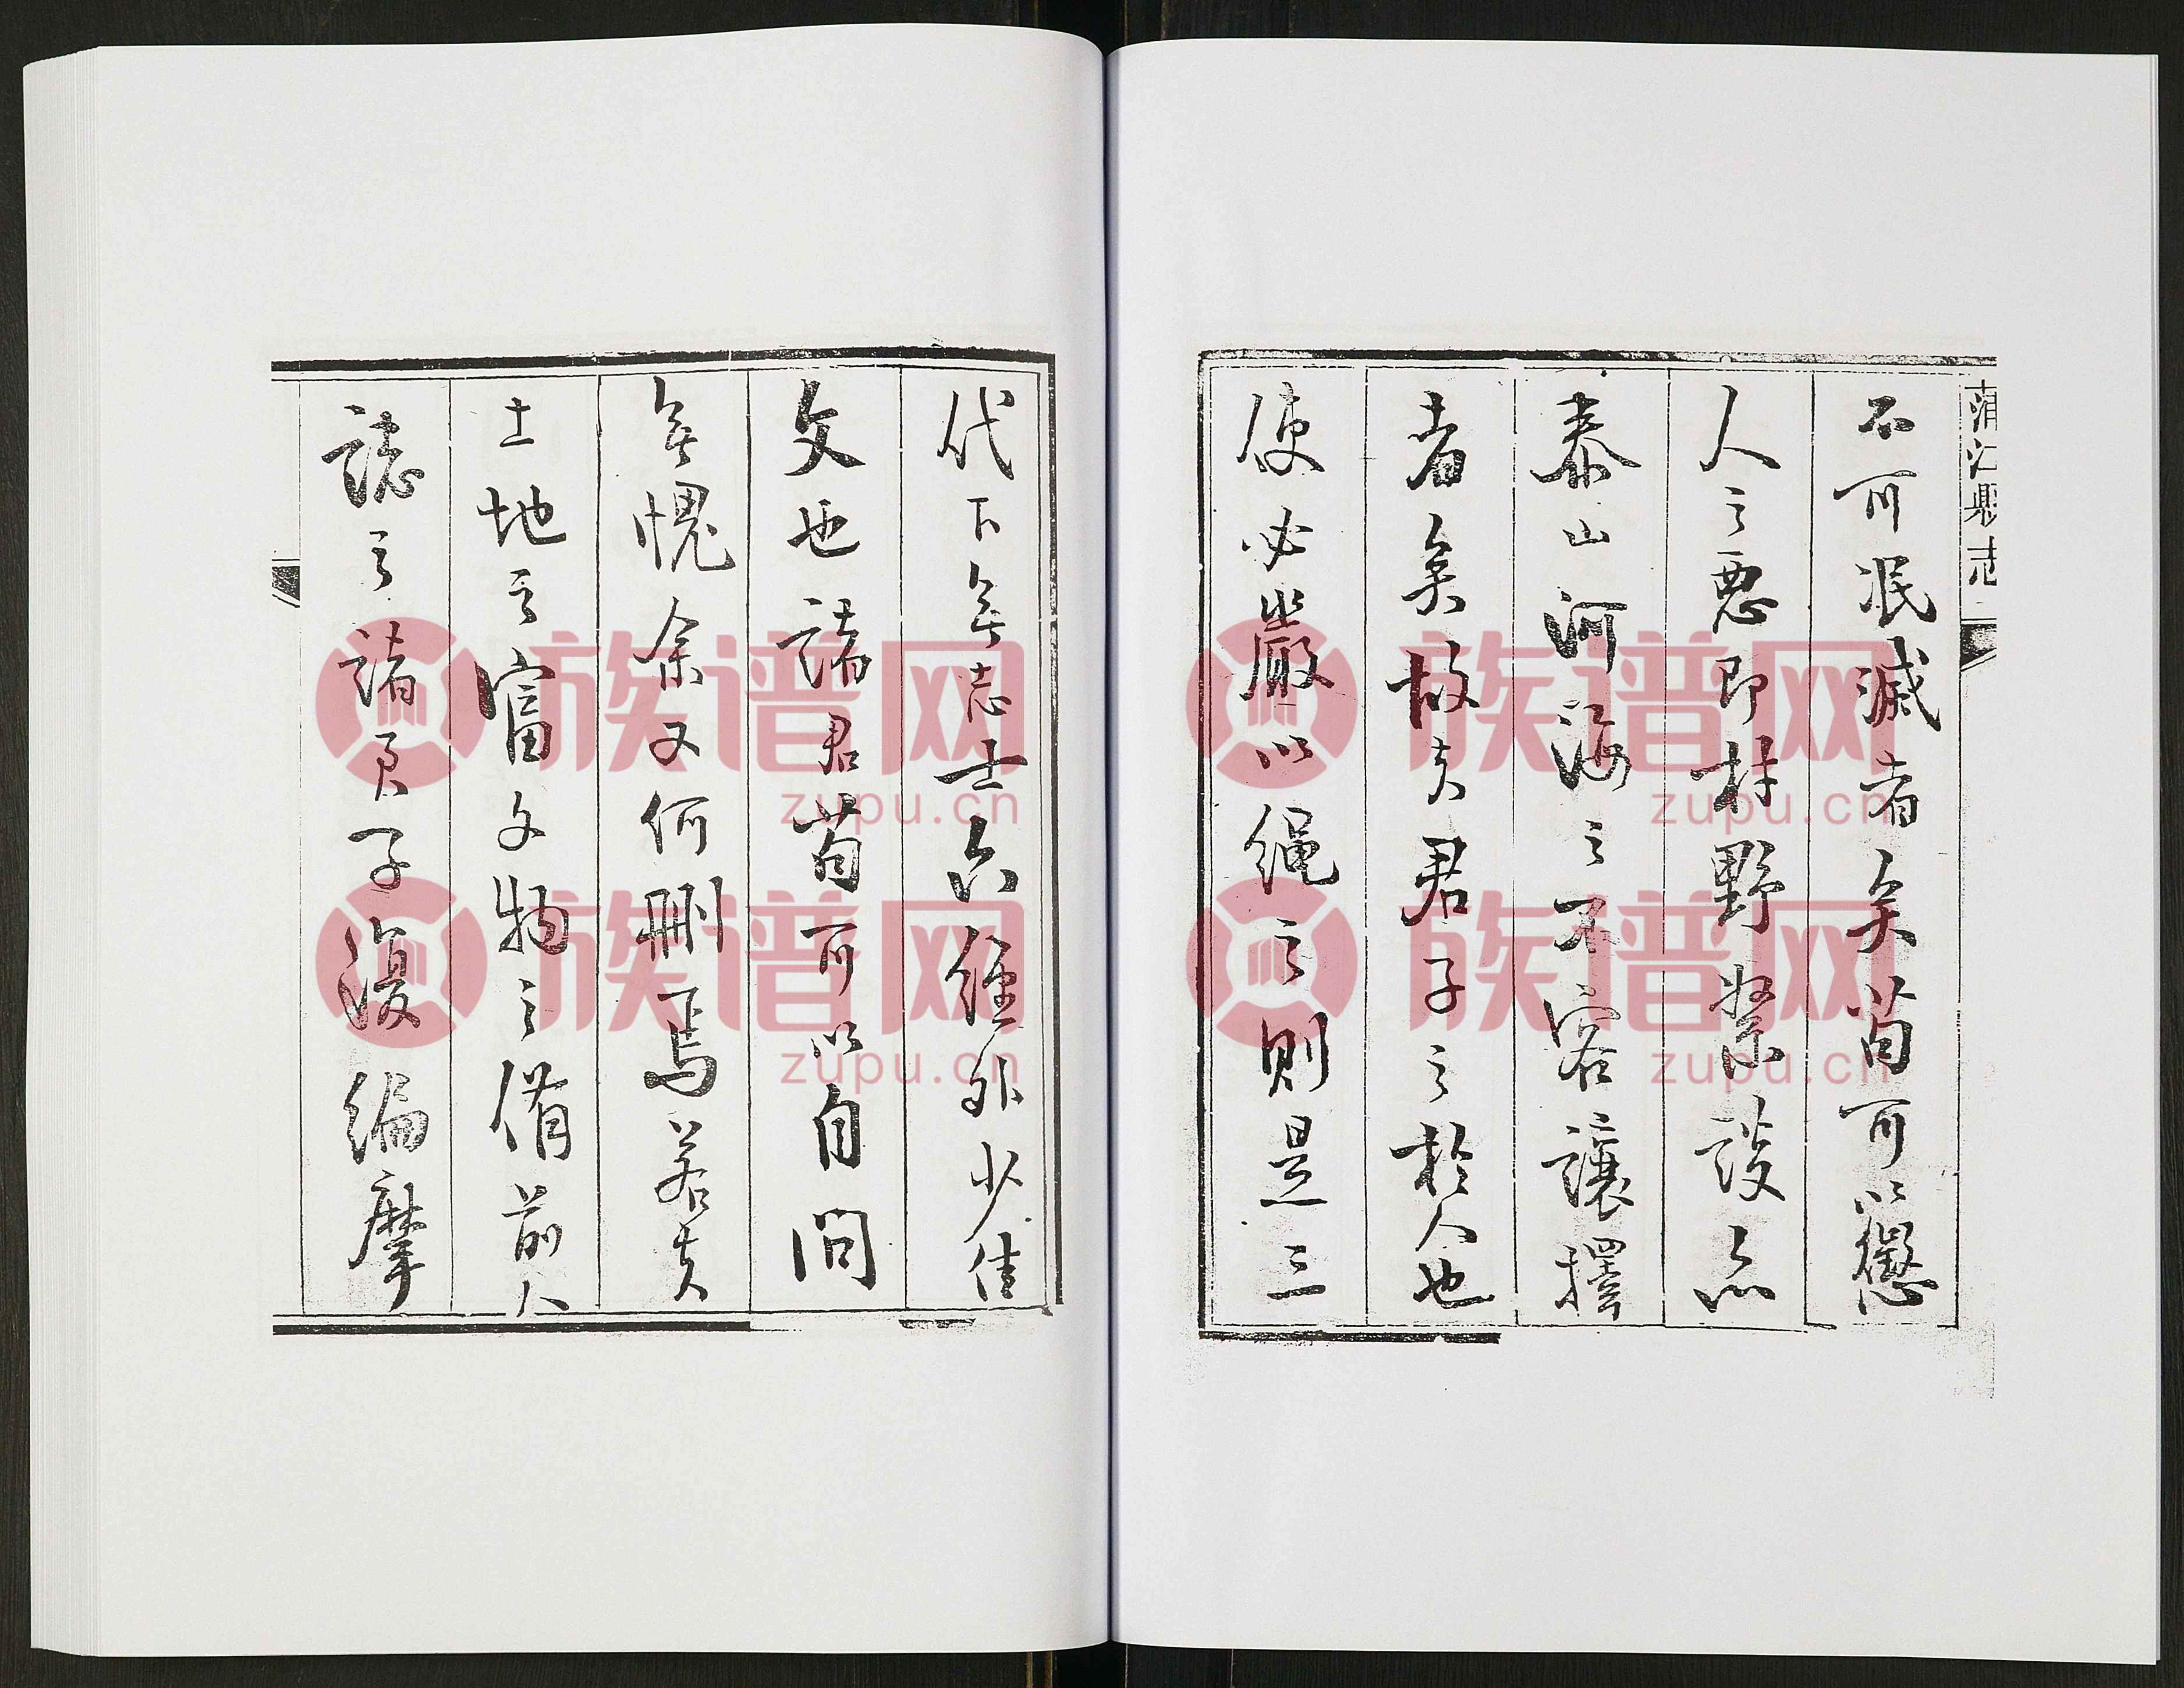 蒲江縣志
不可泯滅者矣苟可以懲
人之惡即村野絮談亦
泰山河海之不容讓擇
者矣故夫君子之於人也
使必嚴以繩之則是三
代下無志士六經外少佳
文也諸君苟可以自問
無愧余又何刪焉若夫
土地之富文物之備前人
誌之諸君子復編摩
族谱网
zupu.cn
族谱网
zupu.cn
族谱网
zupu.cn
族谱网
zupu.cn